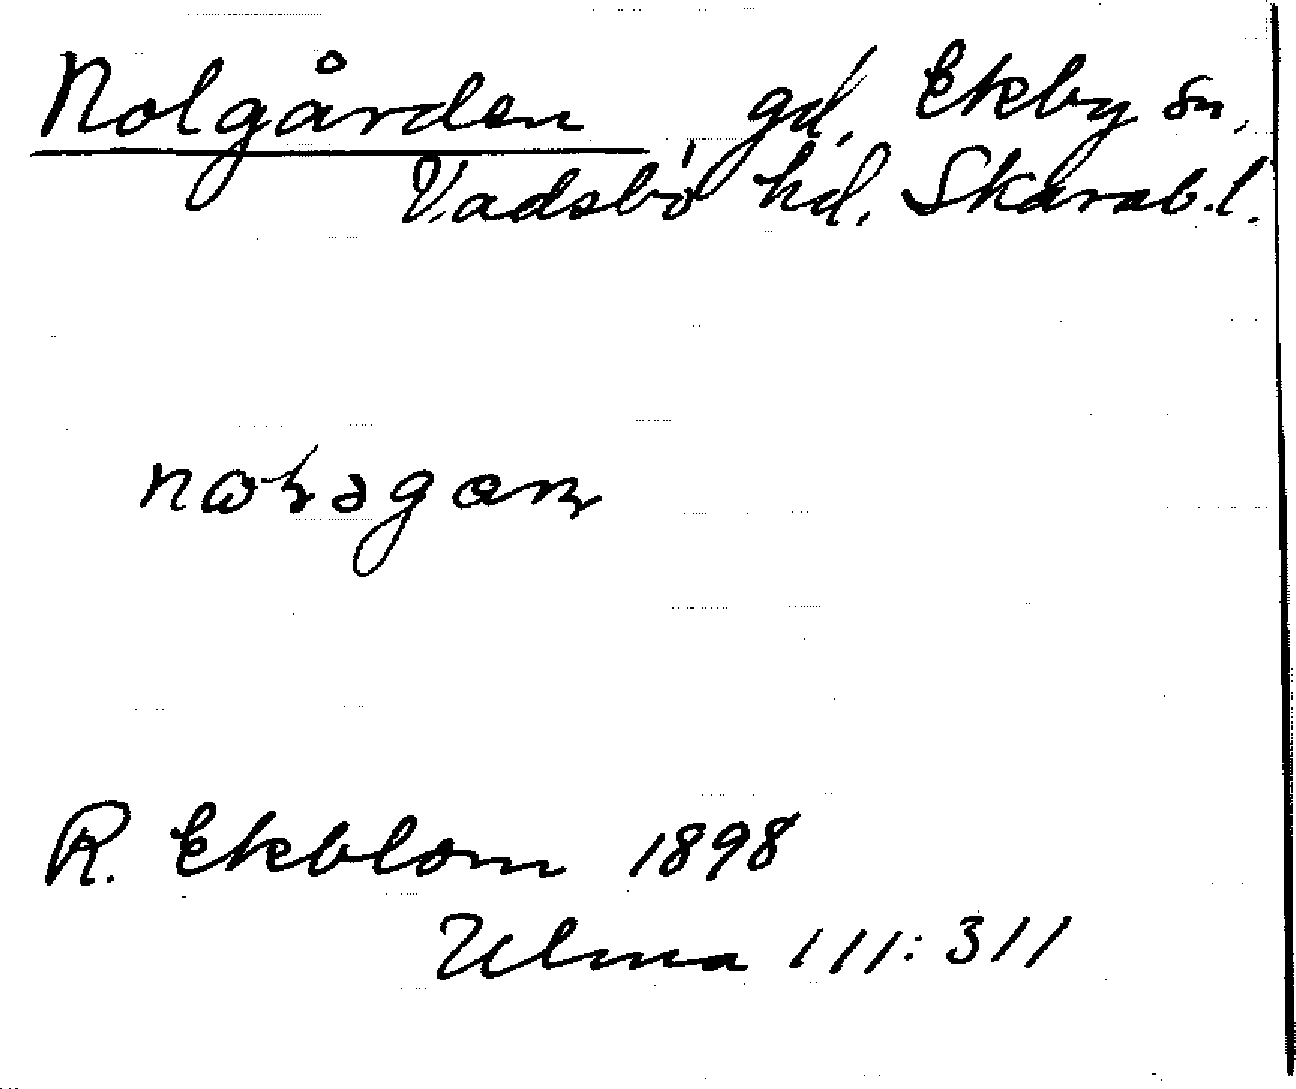 Nolgården gd, Ekby sn,
Vadsbo hd, Skarab.l.
R. Ekblom 1898
Ulma 111:311